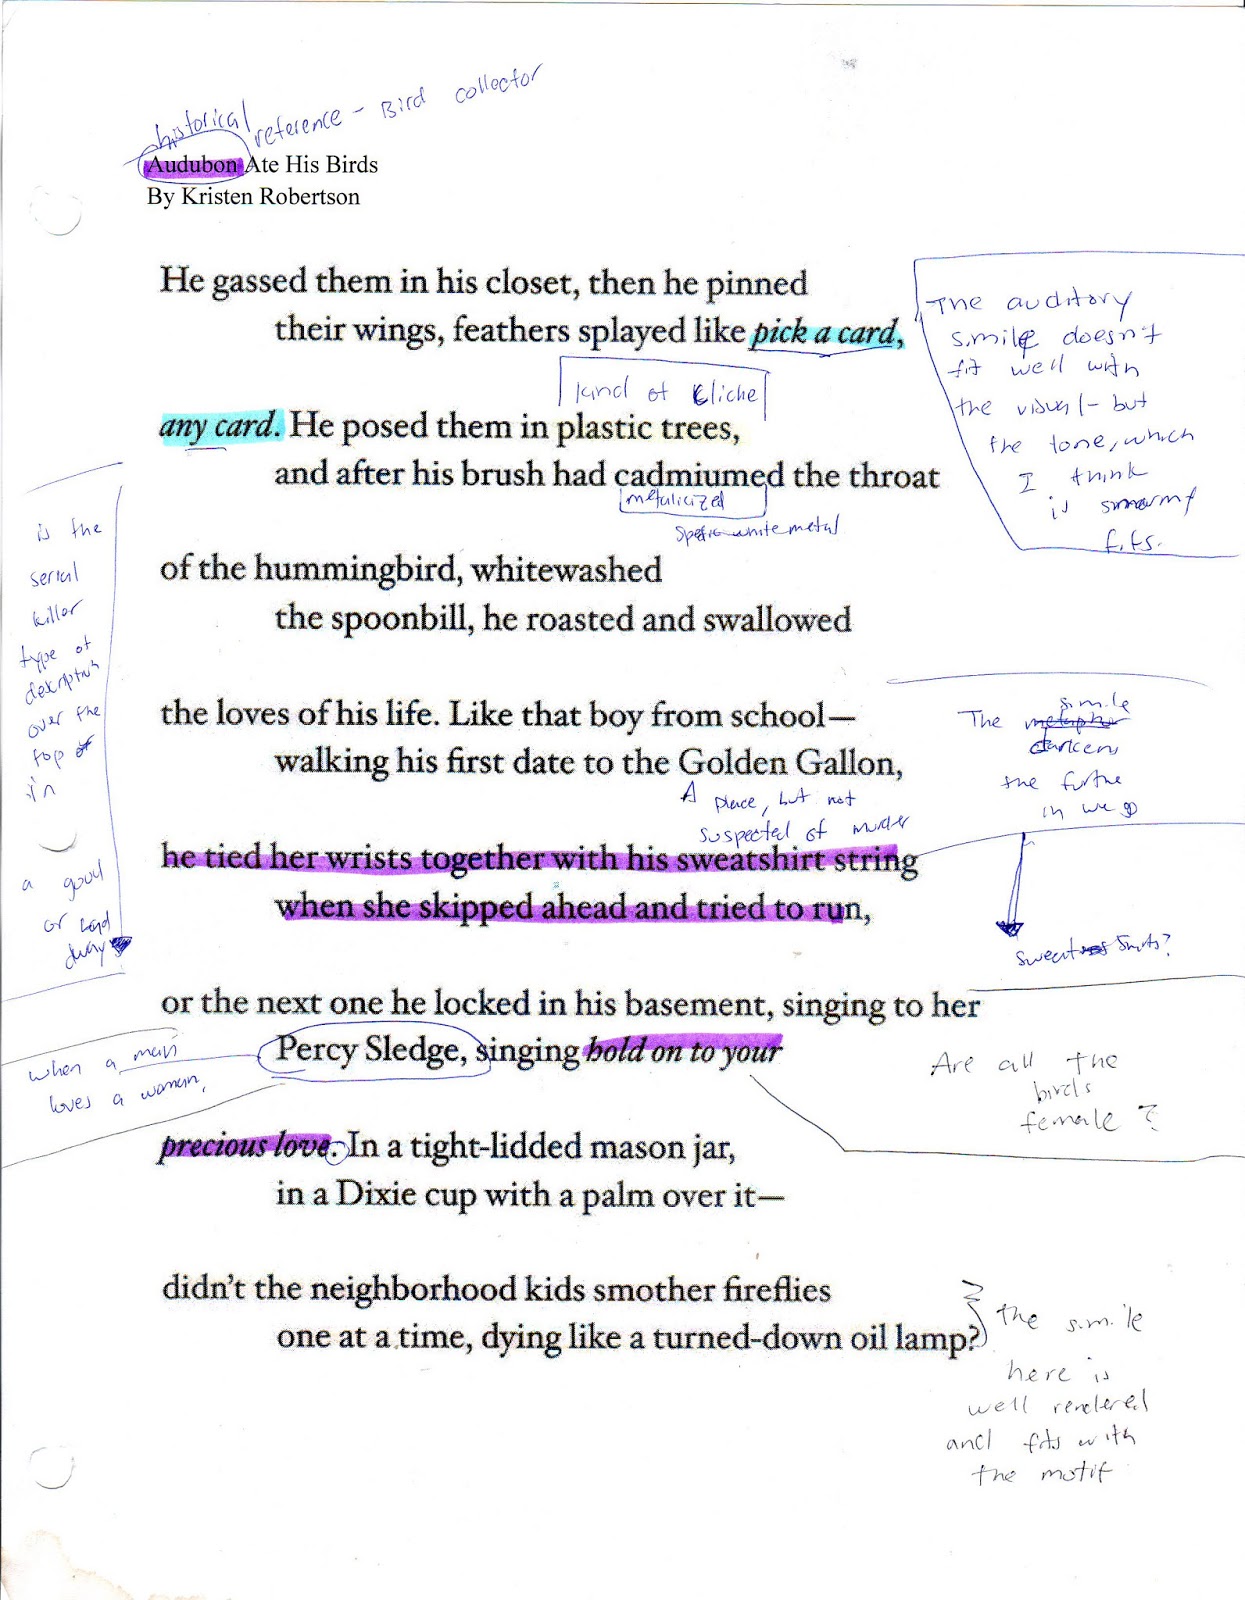 historical reference - Bird collector
Audubon Ate His Birds
By Kristen Robertson
He gassed them in his closet, then he pinned
their wings, feathers splayed like pick a card,
The auditory
simile doesn't
fit well with
the visual - but
the tone, which
I think
is smarmy
fits.
kind of cliche
any card. He posed them in plastic trees,
and after his brush had cadmiumed the throat
metalicized
white metal
is the
serial
killer
type of
description
over the
top
in
a good
or bad
way
of the hummingbird, whitewashed
the spoonbill, he roasted and swallowed
the loves of his life. Like that boy from school—
walking his first date to the Golden Gallon,
The simile
darkens
the further
in we go
A place, but not
suspected of murder
he tied her wrists together with his sweatshirt string
when she skipped ahead and tried to run,
or the next one he locked in his basement, singing to her
Percy Sledge, singing hold on to your
when a man
loves a woman.
Are all the
birds
female?
precious love. In a tight-lidded mason jar,
in a Dixie cup with a palm over it—
didn't the neighborhood kids smother fireflies
one at a time, dying like a turned-down oil lamp?
the simile
here is
well rendered
and fits with
the motif